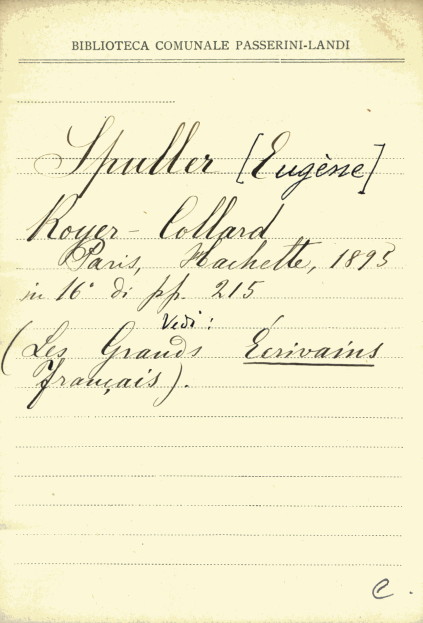 BIBLIOTECA COMUNALE PASSERINI-LANDI
Spuller [Eugène]
Royer-Collard
Paris, Hachette, 1895
in 16° di pp. 215
Vedi:
(Les Grands Écrivains
français).
C